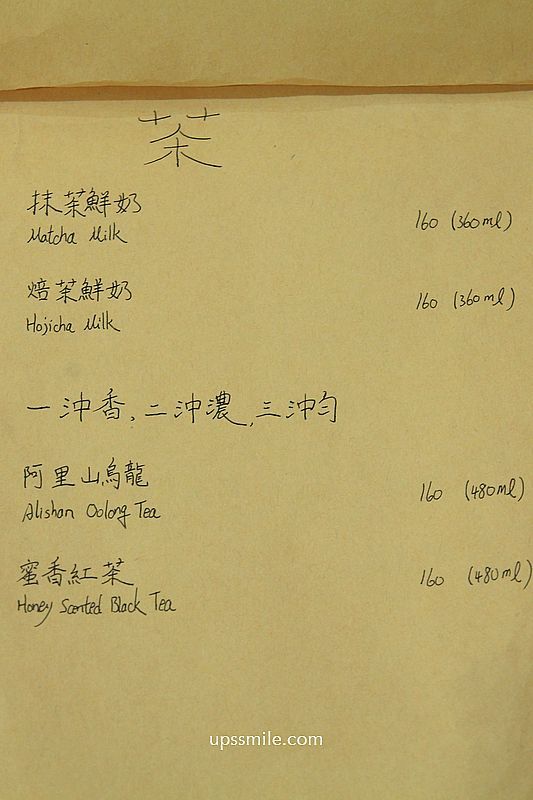 茶
抹茶鮮奶 160 (360ml)
Matcha Milk
焙茶鮮奶 160 (360ml)
Hojicha Milk
一沖香,二沖濃,三沖勻
阿里山烏龍 160 (480ml)
Alishan Oolong Tea
蜜香紅茶 160 (480ml)
Honey Scented Black Tea
upssmile.com